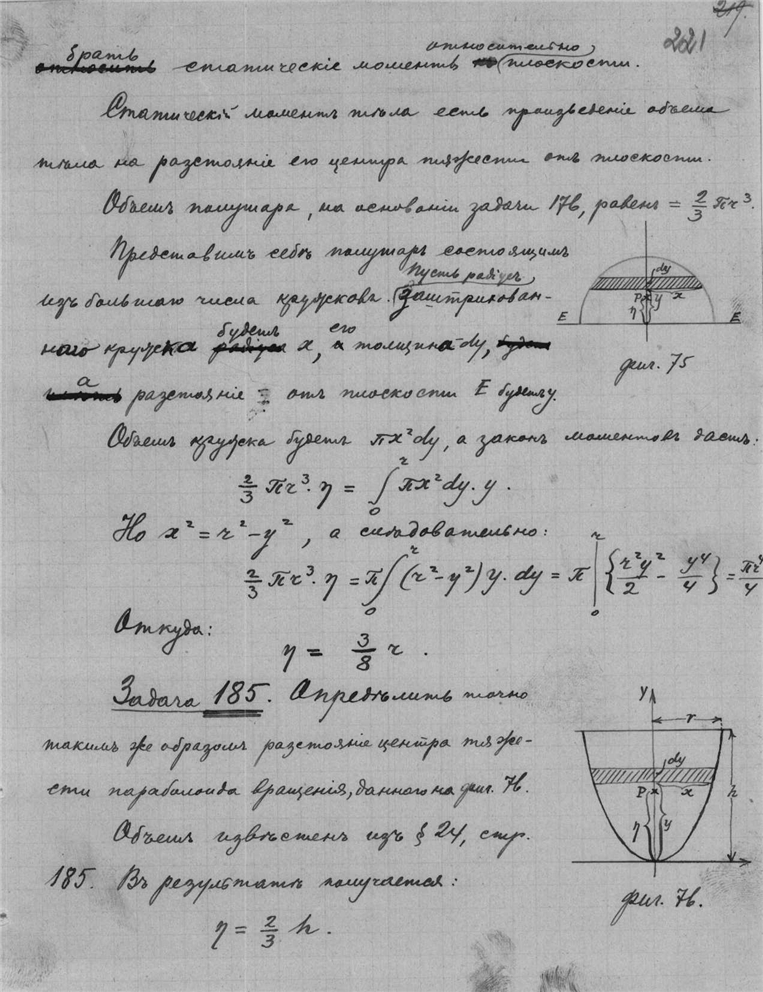 219.
221
брать относительно
относить статическіе моменты плоскости.
Статическій моментъ тѣла есть произведеніе объема
тѣла на разстояніе его центра тяжести отъ плоскости.
Объемъ полушара, на основаніи задачи 176, равенъ = 2/3 πr³.
Представимъ себѣ полушаръ состоящимъ
Пусть радіусъ
изъ большаго числа кружковъ. Заштрихован-
будетъ его
наго кружка радіуса x, а толщина dy, будетъ
а
разстояніе отъ плоскости E будетъ y.
dy
P x y x
η
E E
фиг. 75
Объемъ кружка будетъ πx²dy, а законъ моментовъ дастъ:
2/3 πr³·η = ∫₀ʳ πx²dy·y.
Но x² = r² − y², а слѣдовательно:
2/3 πr³·η = π∫₀ʳ (r²−y²) y·dy = π |₀ʳ {r²y²/2 − y⁴/4} = πr⁴/4
Откуда:
η = 3/8 r.
Задача 185. Опредѣлить точно
такимъ же образомъ разстояніе центра тяже-
сти параболоида вращенія, данного на фиг. 76.
Объемъ извѣстенъ изъ § 24, стр.
185. Въ результатѣ получается:
η = 2/3 h.
y
r
dy
P x x
η y
h
фиг. 76.